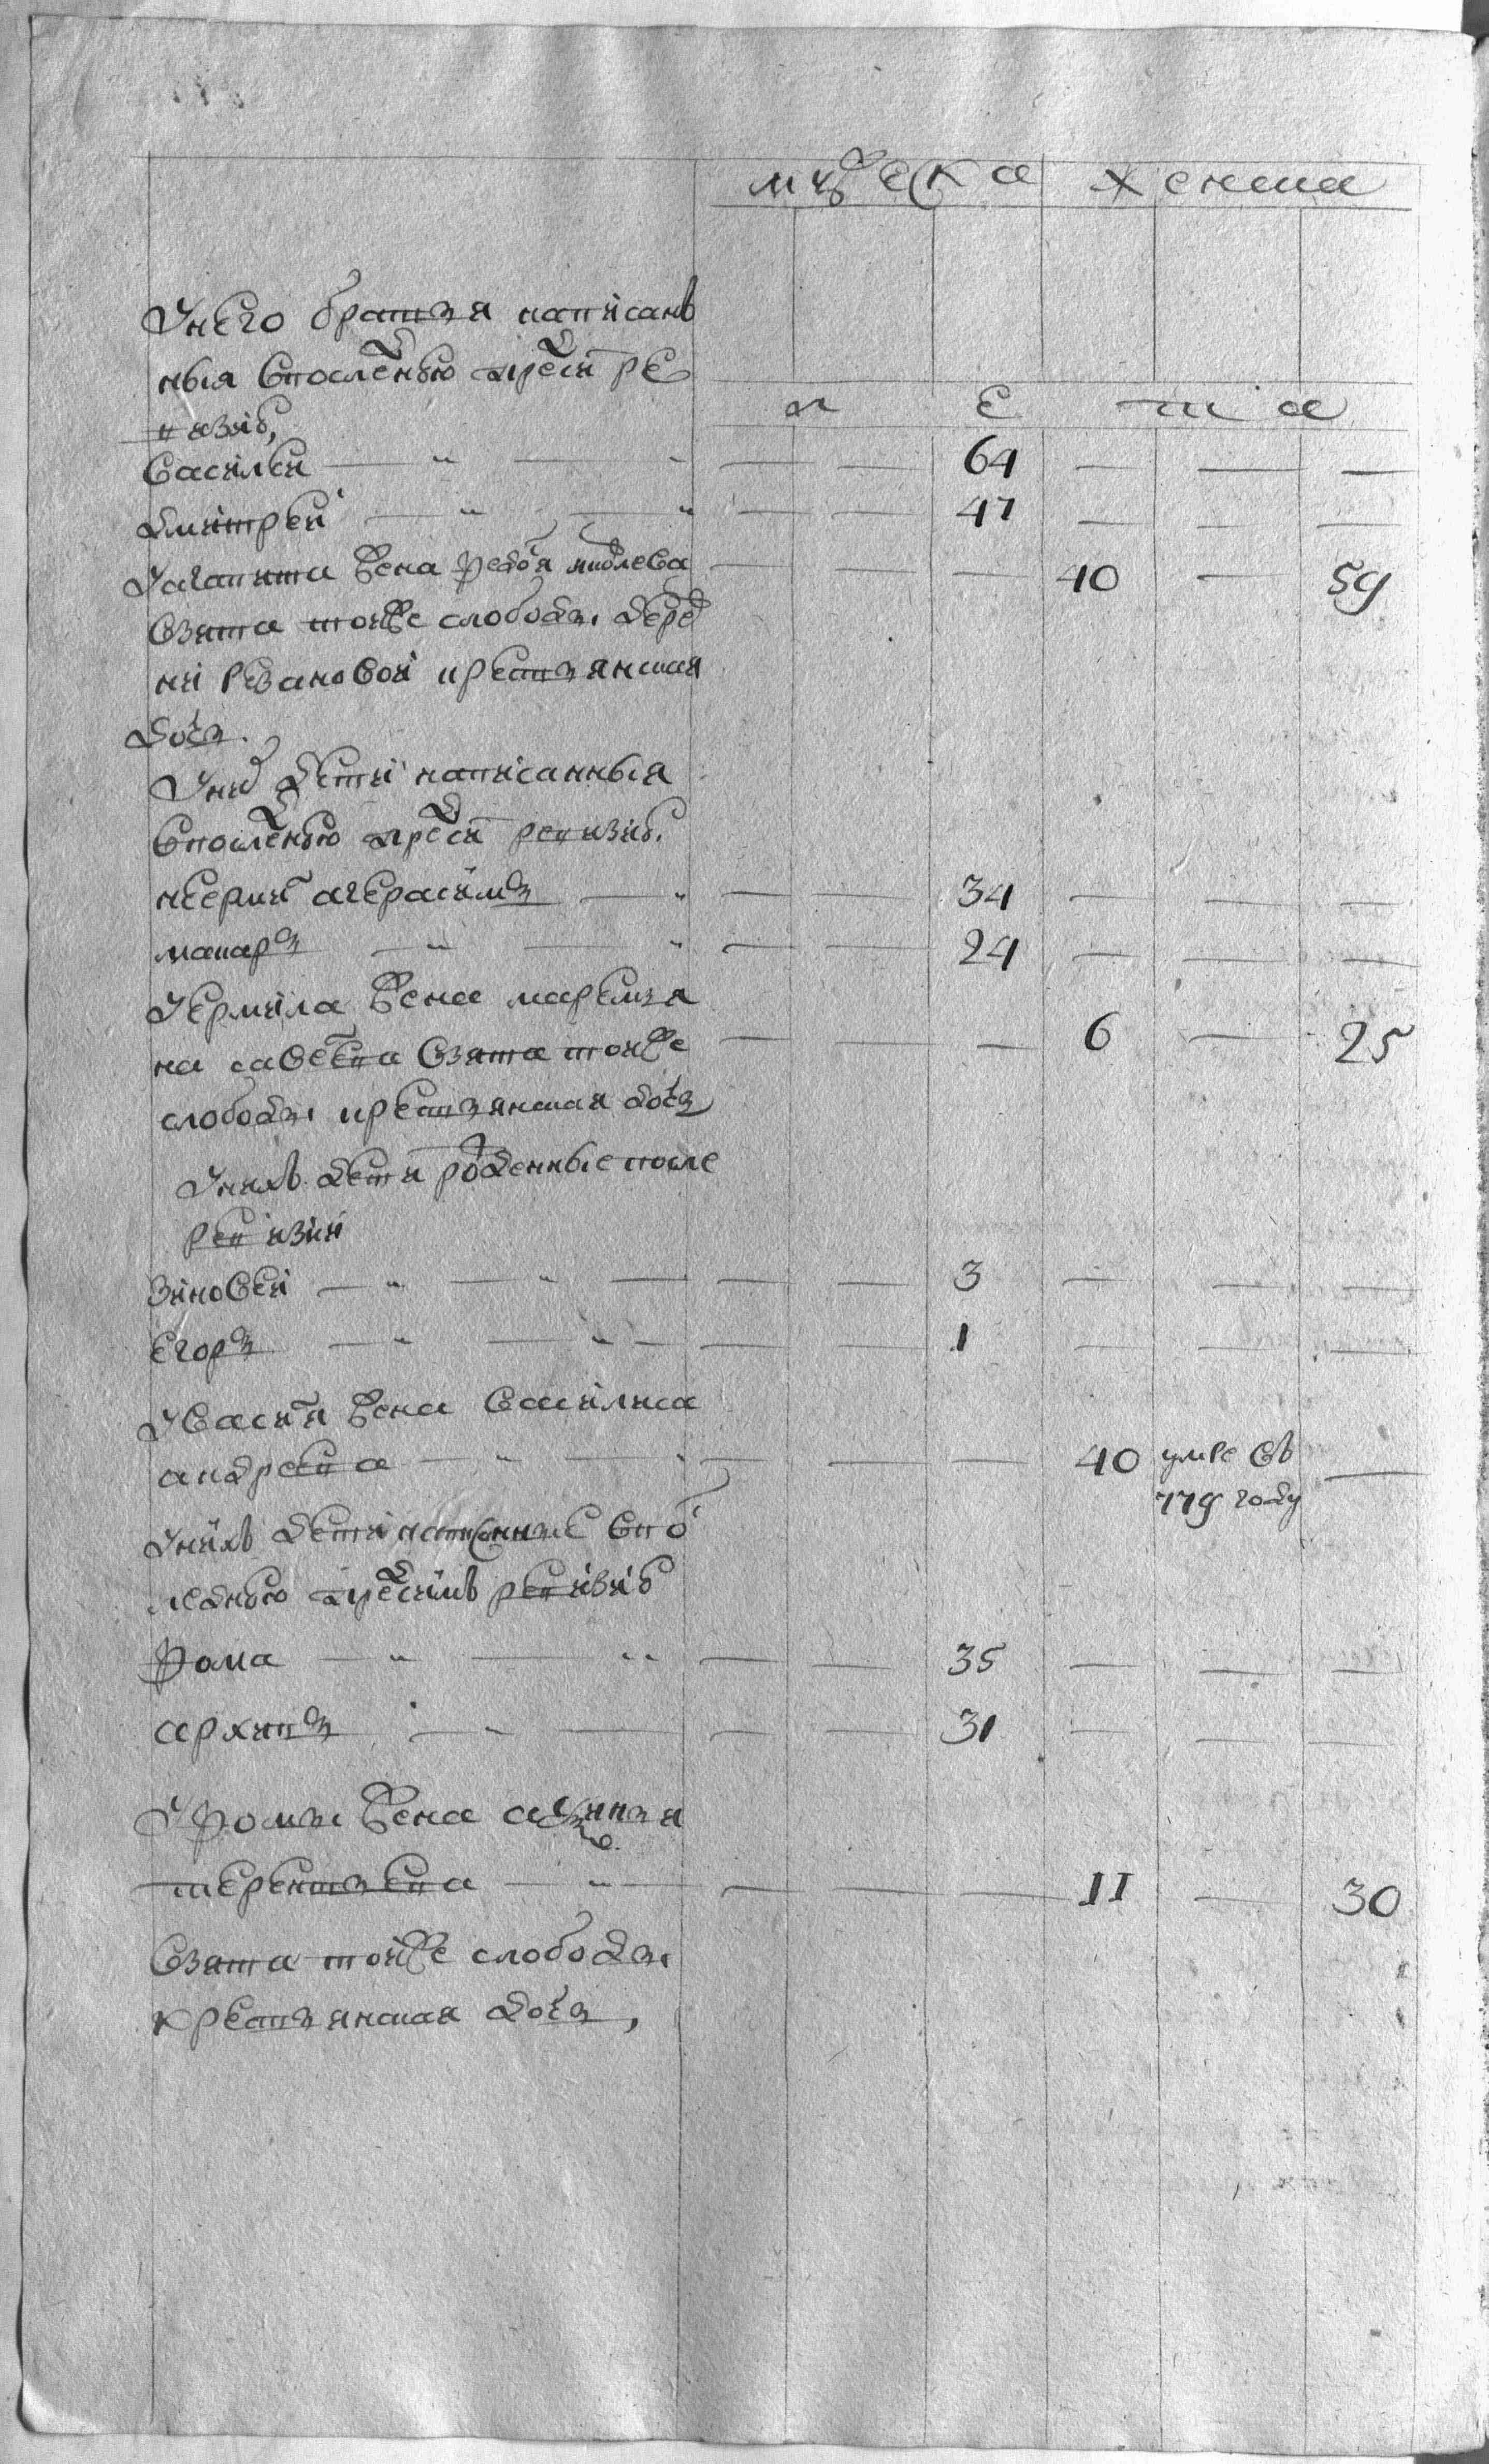 мужеска женска
У него братья написан
ныя впоследнюю пред сим ре
визию,
лета
василей 64
дмитрей 47
У агапита жена федосья 40 59
взята тойже слободы дерев
ни резановой крестьянская
дочь.
У них дети написанныя
впоследнюю пред сим ревизию.
герасимъ 34
макаръ 24
У ермила жена маремья
на савельева взята тойже 6 25
слободы крестьянская дочь
У них дети рожденные после
ревизии
зиновей 3
егоръ 1
У василья жена василиса
андреева 40 умре въ
779 году
У них дети написанные впос
леднюю пред симъ ревизию
фома 35
архипъ 31
У фомы жена
терентьева 11 30
взята тойже слободы
крестьянская дочь,